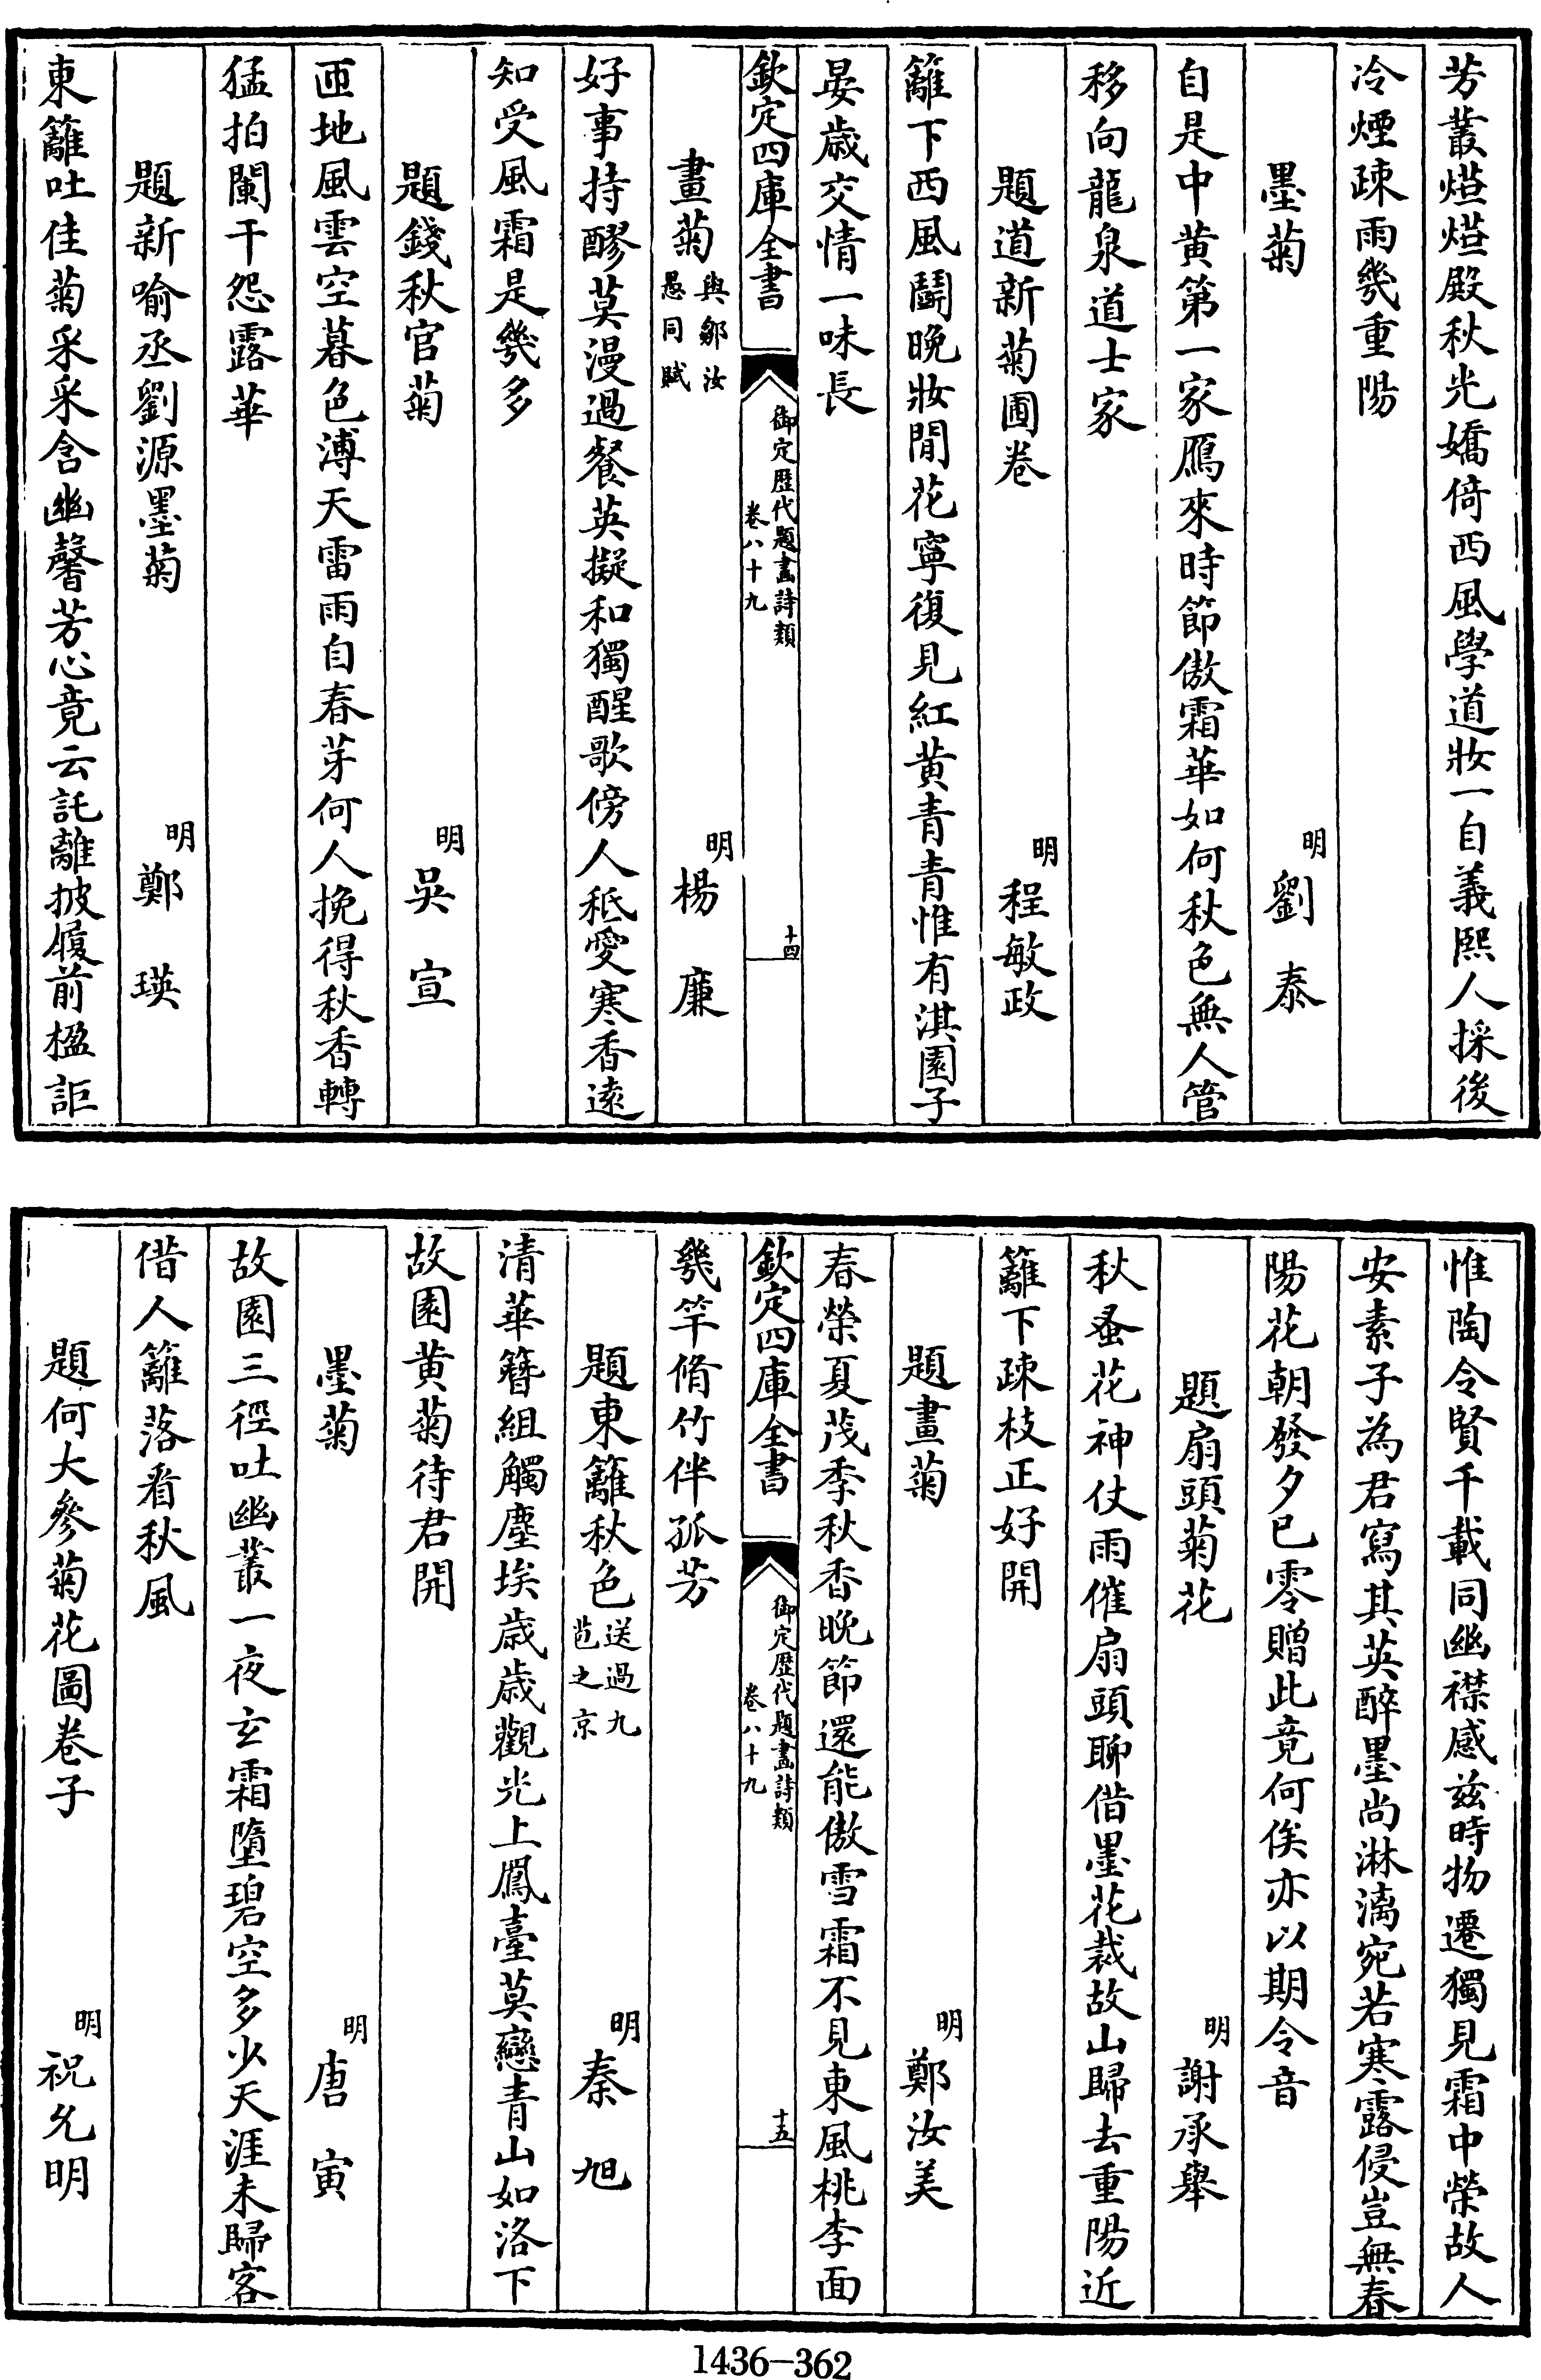 芳叢熖熖殿秋光嬌倚西風學道妝一自義熙人採後
冷煙疎雨幾重陽
墨菊 明劉泰
自是中黄第一家鴈來時節傲霜華如何秋色無人管
移向龍泉道士家
題道新菊圃卷 明程敏政
籬下西風鬪晚妝閒花寧復見紅黄青青惟有淇園子
晏歳交情一味長
欽定四庫全書 御定歴代題畫詩類 卷八十九 十四
畫菊 與鄒汝愚同賦 明楊廉
好事持醪莫漫過餐英擬和獨醒歌傍人秪愛寒香遠
知受風霜是幾多
題錢秋官菊 明吳宣
匝地風雲空暮色溥天雷雨自春芽何人挽得秋香轉
猛拍闌干怨露華
題新喻丞劉源墨菊 明鄭瑛
東籬吐佳菊采采含幽馨芳心竟云託離披履前楹詎
惟陶令賢千載同幽襟感兹時物遷獨見霜中榮故人
安素子為君寫其英醉墨尚淋漓宛若寒露侵豈無春
陽花朝發夕已零贈此竟何俟亦以期令音
題扇頭菊花 明謝承舉
秋蚤花神仗雨催扇頭聊借墨花裁故山歸去重陽近
籬下疎枝正好開
題畫菊 明鄭汝美
春榮夏茂季秋香晚節還能傲雪霜不見東風桃李面
欽定四庫全書 御定歴代題畫詩類 卷八十九 十五
幾竿脩竹伴孤芳
題東籬秋色 送過九苞之京 明秦旭
清華簪組觸塵埃歳歳觀光上鳳臺莫戀青山如洛下
故園黄菊待君開
墨菊 明唐寅
故園三徑吐幽叢一夜玄霜墮碧空多少天涯未歸客
借人籬落看秋風
題何大參菊花圖卷子 明祝允明
1436-362